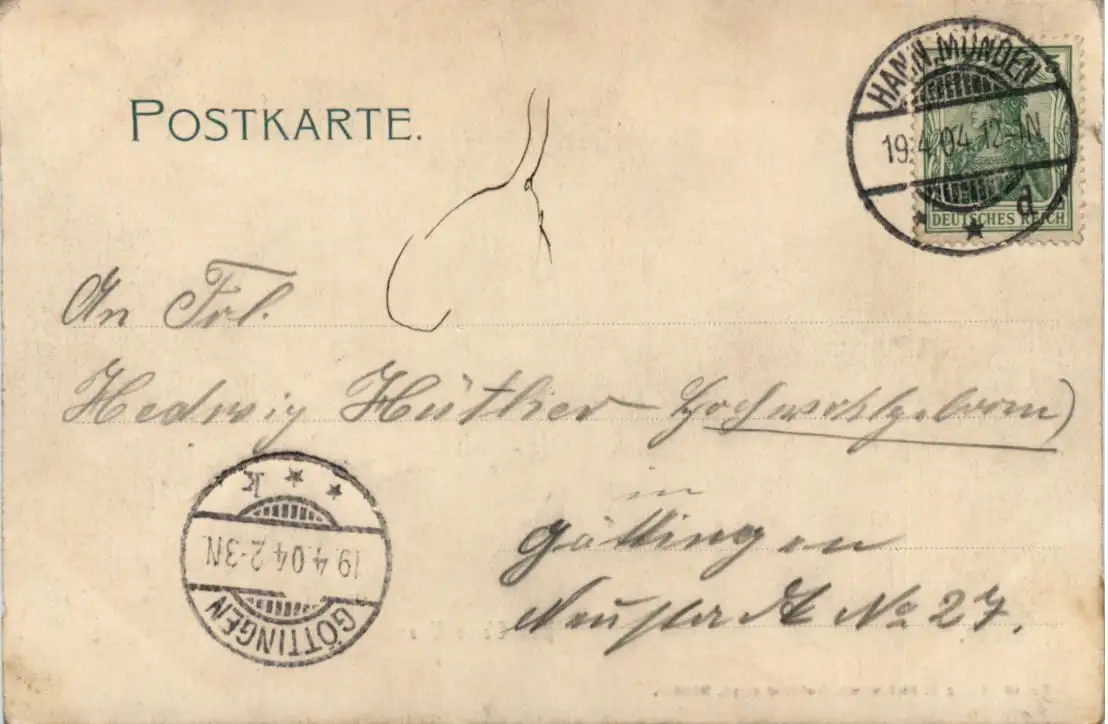 POSTKARTE.
HANN. MÜNDEN
19.4.04.12-1N
d
5
DEUTSCHES REICH
An Frl.
Hedwig Hütlier Hochwohlgeboren
in
Göttingen
Neustadt No 27.
k
19.4.04.2-3N.
GÖTTINGEN